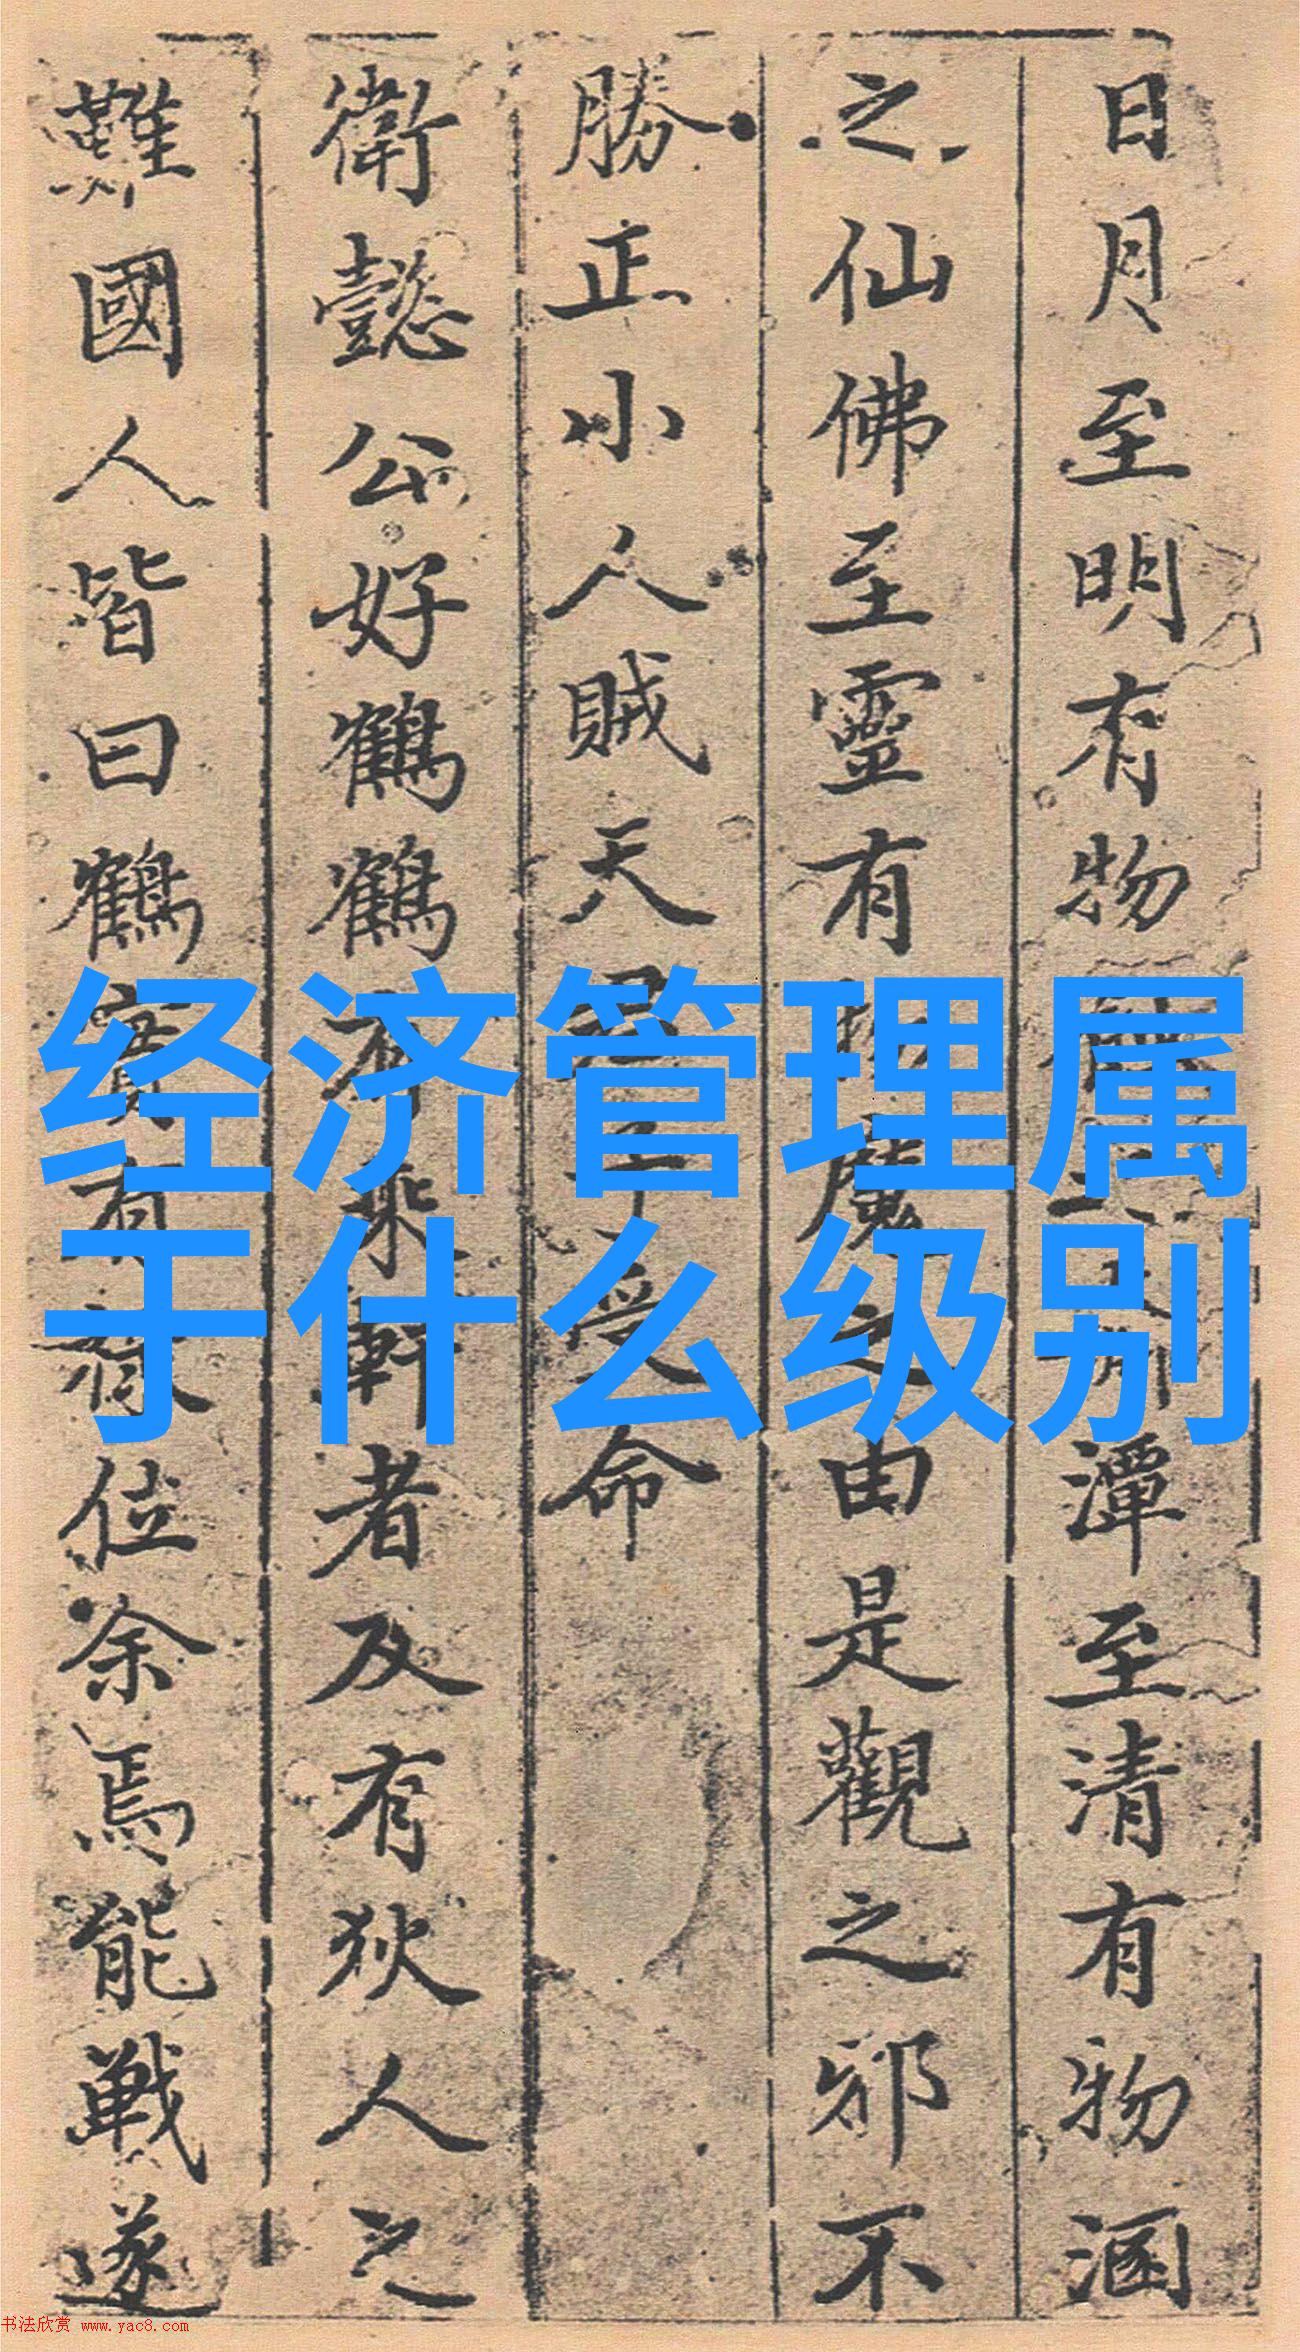 日月至明有物
潭至清有物涵
之仙佛至靈有
魔之由是觀之邪不
勝正小人賊天
受命
衛懿公好鶴鶴
乘軒者及有狄人之
難國人皆曰鶴
實有祿位余焉能戰遂
经济管理属
于什么级别
书法欣赏 www.yac8.com